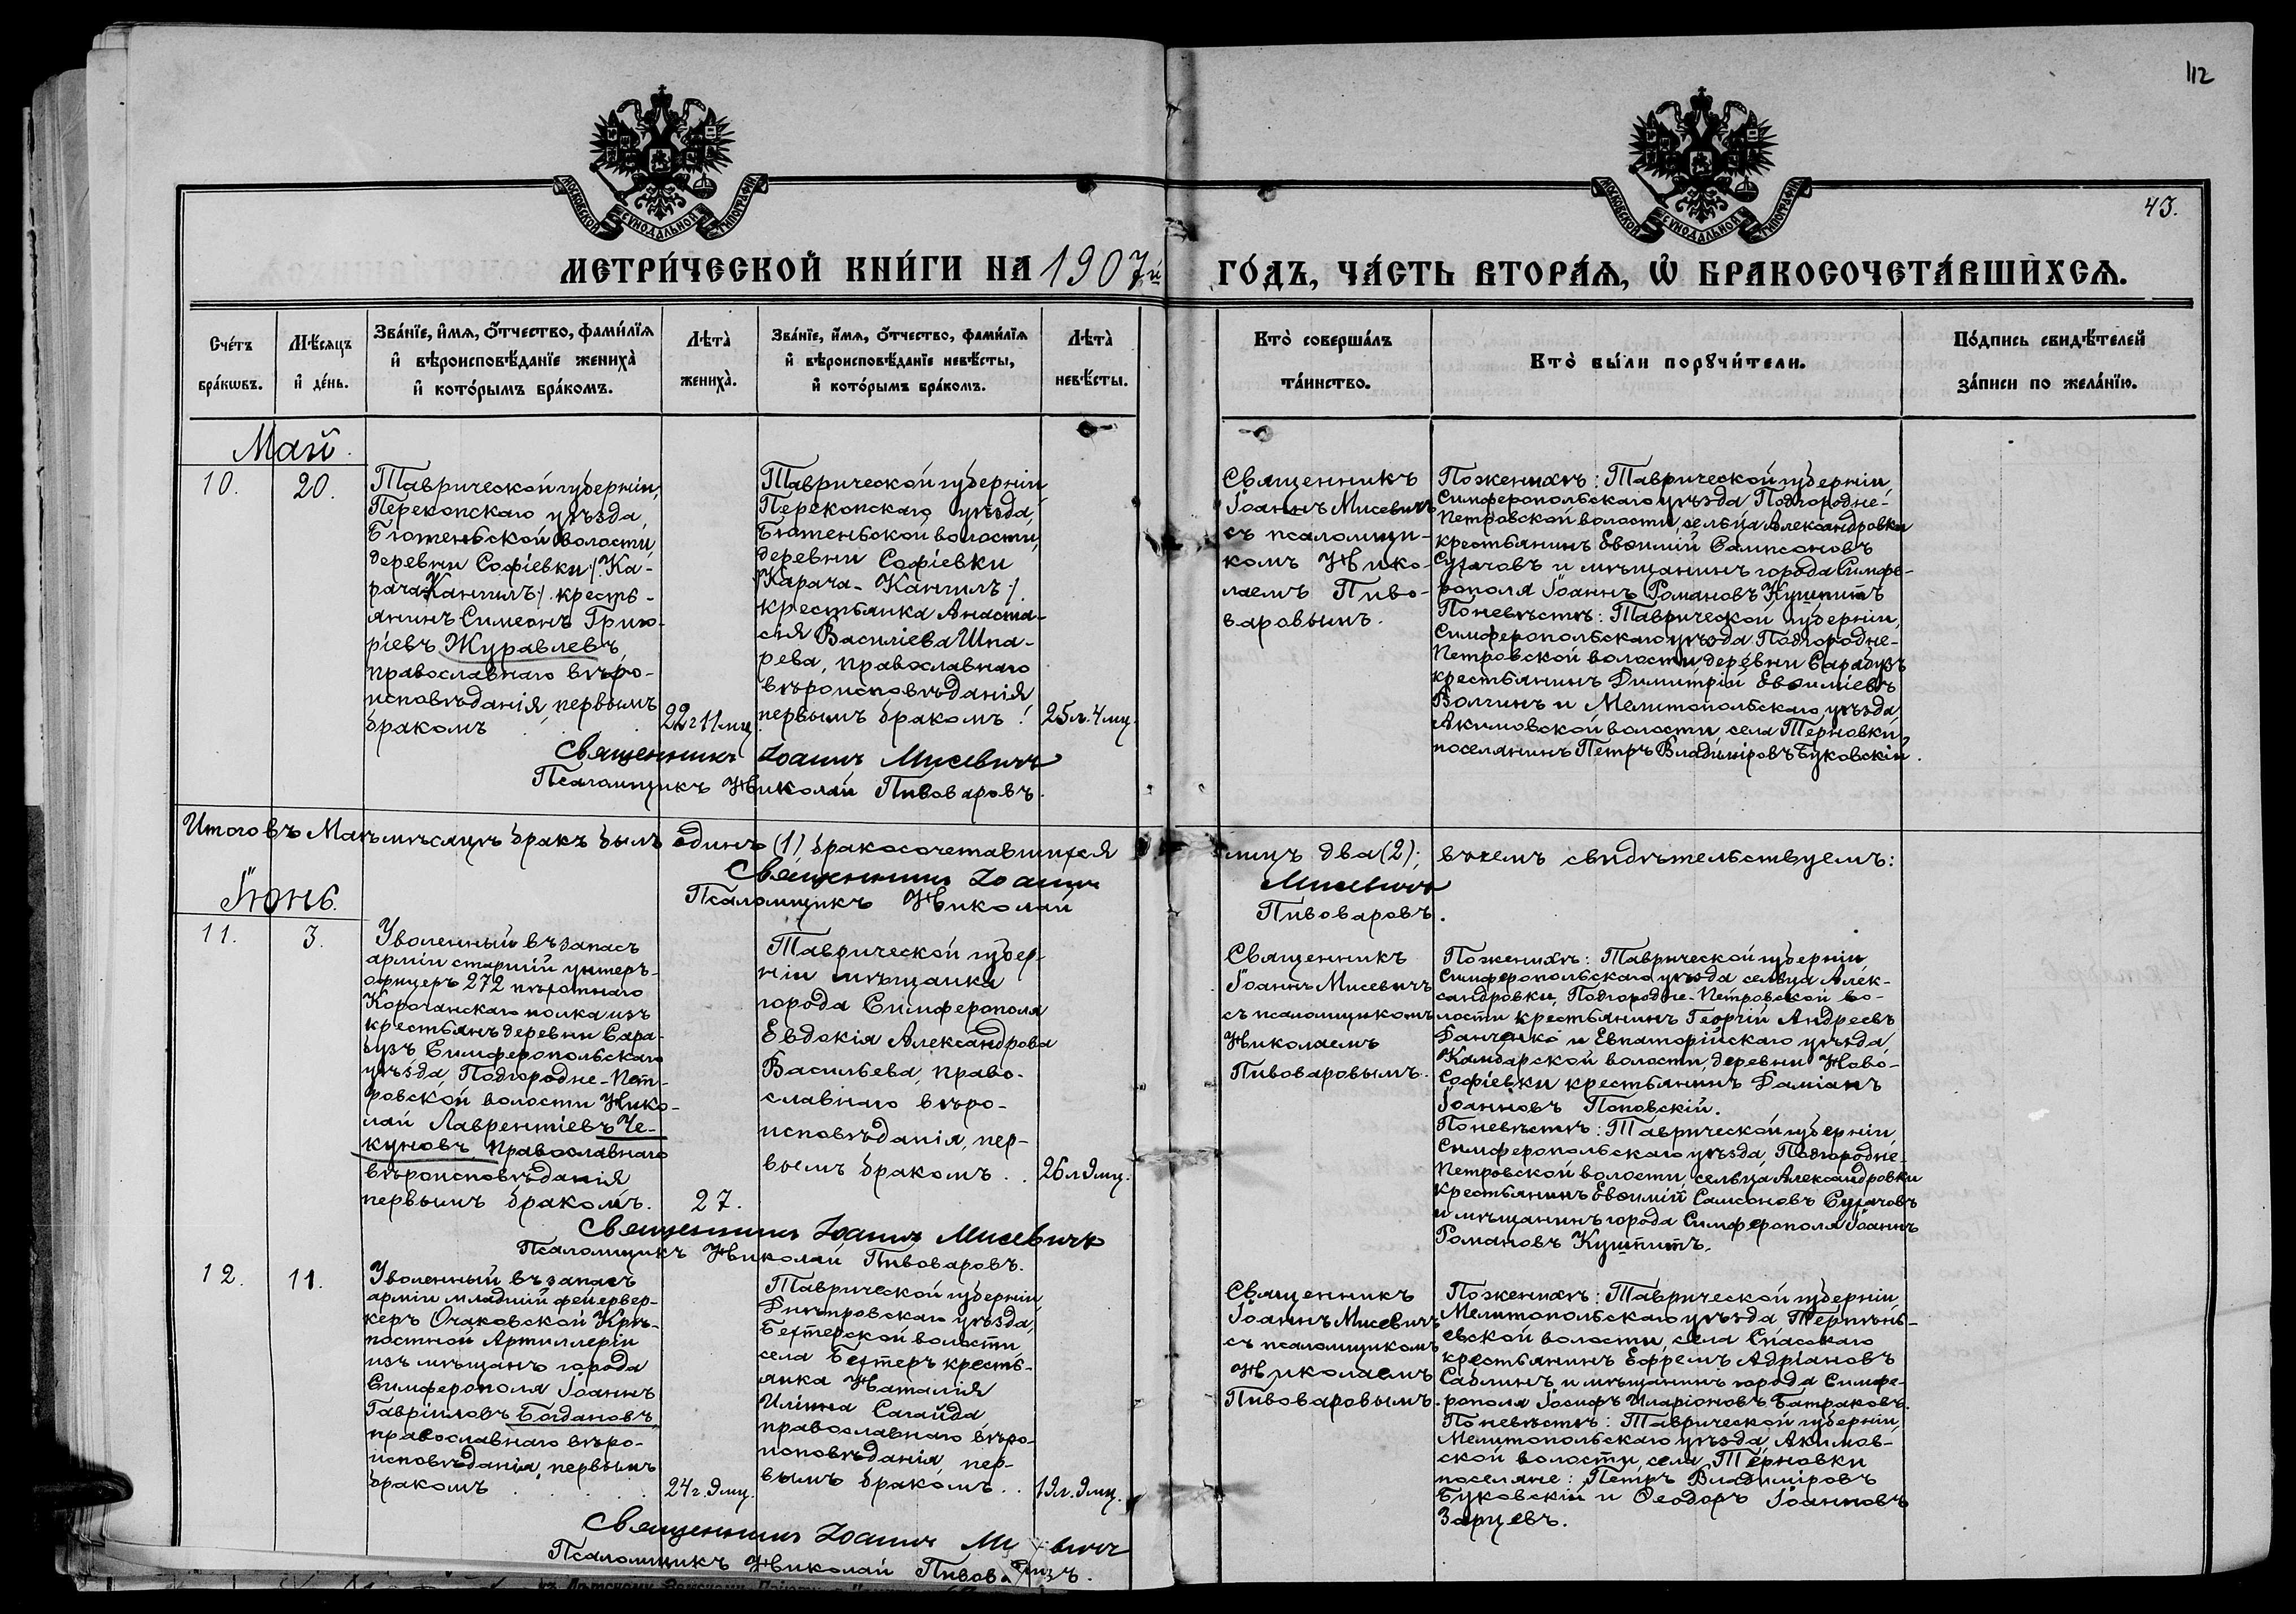 112
43.
МОСКОВСКОЙ СѴНОДАЛЬНОЙ ТИПОГРАФІИ
МОСКОВСКОЙ СѴНОДАЛЬНОЙ ТИПОГРАФІИ
МЕТРИ́ЧЕСКОЙ КНИ́ГИ НА 1907й ГО́ДЪ, ЧА́СТЬ ВТОРА́Ѧ, Ѽ БРАКОСОЧЕТА́ВШИХСѦ.
Сче́тъ
бра́кωвъ.
Мѣ́сяцъ
и҆ де́нь.
Зва́нїе, и҆́мя, ѻ҆́тчество, фами́лїя
и҆ вѣроисповѣ́данїе жениха̀
и҆ кото́рымъ бра́комъ.
Лѣта̀
жениха̀.
Зва́нїе, и҆́мя, ѻ҆́тчество, фами́лїя
и҆ вѣроисповѣ́данїе невѣ́сты,
и҆ кото́рымъ бра́комъ.
Лѣта̀
невѣ́сты.
Кто̀ соверша́лъ
та́инство.
Кто̀ бы́ли порꙋчи́тели.
По́дпись свидѣ́телей
за́писи по жела́нїю.
Май.
10.
20.
Таврической губерніи,
Перекопскаго уѣзда,
Бютеньской волости,
деревни Софіевки /. Ка-
рача Кангилъ /. кресть-
янинъ Симеонъ Григо-
ріевъ Журавлевъ,
православнаго вѣро-
исповѣданія, первымъ
бракомъ
22 г 11 мц
Таврической губерніи,
Перекопскаго уѣзда,
Бютеньской волости,
деревни Софіевки
/Карача-Кангилъ /.
крестьянка Анаста-
сія Василіева Шпа-
рева, православнаго
вѣроисповѣданія,
первымъ бракомъ.
25 л. 4 мц.
Священникъ
Іоаннъ Мисевичъ
съ псаломщи-
комъ Нико-
лаемъ Пиво-
варовымъ.
По женихѣ: Таврической губерніи,
Симферопольскаго уѣзда, Подгородне-
Петровской волости, сельца Александровки
крестьянинъ Евѳимій Сампсоновъ
Сугачовъ и мѣщанинъ города Симфе-
рополя Іоаннъ Романовъ Кушпитъ
По невѣстѣ: Таврической губерніи,
Симферопольскаго уѣзда Подгородне-
Петровской волости, деревни Сарабузъ
крестьянинъ Димитрій Евѳиміевъ
Волгинъ и Мелитопольскаго уѣзда,
Акимовской волости, села Терновки
поселянинъ Петръ Владиміровъ Буковскій.
Священникъ Іоаннъ Мисевичъ
Псаломщикъ Николай Пивоваровъ.
Итого въ Маѣ мѣсяцѣ бракъ былъ одинъ (1) бракосочетавшихся лицъ два (2); въ чемъ свидѣтельствуемъ:
Священникъ Іоаннъ Мисевичъ
Псаломщикъ Николай Пивоваровъ.
Іюнь.
11.
3.
Уволенный въ запасъ
арміи старшій унтеръ-
офицеръ 272 пѣхотнаго
полка изъ
крестьянъ деревни Сара-
бузъ Симферопольскаго
уѣзда, Подгородне-Пет-
ровской волости Нико-
лай Лаврентіевъ Че-
куновъ, православнаго
вѣроисповѣданія
первымъ бракомъ.
27.
Таврической губер-
ніи мѣщанка
города Симферополя
Евдокія Александрова
Васильева, право-
славнаго вѣро-
исповѣданія, пер-
вымъ бракомъ . .
26 л 9 мц.
Священникъ
Іоаннъ Мисевичъ
съ псаломщикомъ
Николаемъ
Пивоваровымъ.
По женихѣ: Таврической губерніи,
Симферопольскаго уѣзда сельца Алек-
сандровки, Подгородне-Петровской во-
лости крестьянинъ Георгій Андреевъ
Ганченко и Евпаторійскаго уѣзда,
Камбарской волости, деревни Ново-
Софіевки крестьянинъ Даміанъ
Іоанновъ Поповскій.
По невѣстѣ: Таврической губерніи,
Симферопольскаго уѣзда, Подгородне-
Петровской волости, сельца Александровки
крестьянинъ Евѳимій Самсоновъ Сугачовъ
и мѣщанинъ города Симферополя Іоаннъ
Романовъ Кушпитъ.
Священникъ Іоаннъ Мисевичъ
Псаломщикъ Николай Пивоваровъ.
12.
11.
Уволенный въ запасъ
арміи младшій фейервер-
керъ Очаковской Крѣ-
постной Артиллеріи
изъ мѣщанъ города
Симферополя Іоаннъ
Гавріиловъ Богдановъ,
православнаго вѣро-
исповѣданія, первымъ
бракомъ . . . .
24 г. 9 мц.
Таврической губерніи,
Днѣпровскаго уѣзда,
Бехтерской волости
села Бехтеръ кресть-
янка Наталія
Иліина Сагайда,
православнаго вѣро-
исповѣданія, пер-
вымъ бракомъ . .
19 л. 9 мц.
Священникъ
Іоаннъ Мисевичъ
съ псаломщикомъ
Николаемъ
Пивоваровымъ.
По женихѣ: Таврической губерніи,
Мелитопольскаго уѣзда, Терпѣнь-
евской волости, села Спасскаго
крестьянинъ Ефремъ Адріановъ
Саблинъ и мѣщанинъ города Симфе-
рополя Іосифъ Иларіоновъ Батраковъ.
По невѣстѣ: Таврической губерніи,
Мелитопольскаго уѣзда, Акимов-
ской волости, села Терновки
поселяне: Петръ Владиміровъ
Буковскій и Ѳеодоръ Іоанновъ
Зарцевъ.
Священникъ Іоаннъ
Псаломщикъ Николай